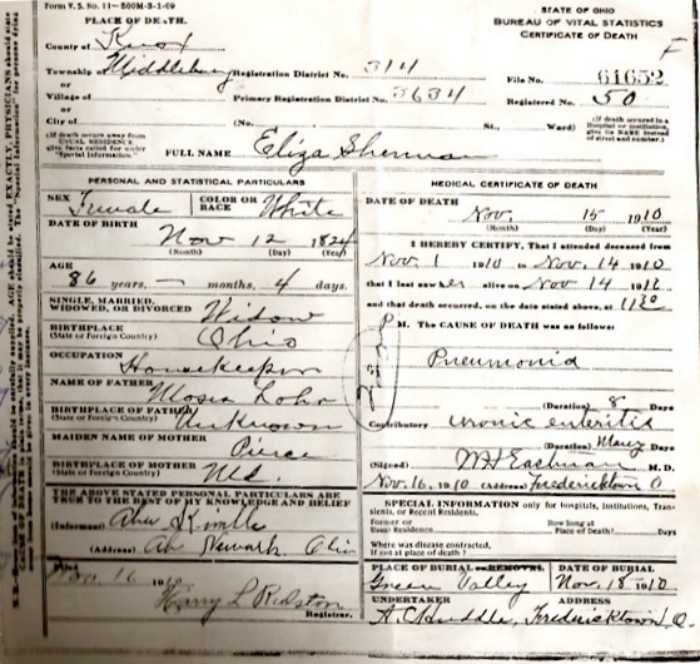 Form V. S. No. 11—500M-3-1-09
PLACE OF DEATH.
STATE OF OHIO
BUREAU OF VITAL STATISTICS
CERTIFICATE OF DEATH
County of Knox
Township of Middlebury Registration District No. 314 File No. 61652
Village of Primary Registration District No. 5634 Registered No. 50
City of (No. St., Ward)
(If death occurs away from USUAL RESIDENCE give facts called for under "Special Information.")
(If death occurred in a Hospital or institution, give its NAME instead of street and number.)
FULL NAME Eliza Sherman
PERSONAL AND STATISTICAL PARTICULARS
SEX Female COLOR OR RACE White
DATE OF BIRTH Nov 12 1824
(Month) (Day) (Year)
AGE
86 years, — months, 4 days.
SINGLE, MARRIED,
WIDOWED, OR DIVORCED Widow
BIRTHPLACE
(State or Foreign Country) Ohio
OCCUPATION Housekeeper
NAME OF FATHER
BIRTHPLACE OF FATHER
(State or Foreign Country) Unknown
MAIDEN NAME OF MOTHER Pierce
BIRTHPLACE OF MOTHER
(State or Foreign Country) Md.
THE ABOVE STATED PERSONAL PARTICULARS ARE
TRUE TO THE BEST OF MY KNOWLEDGE AND BELIEF
(Informant)
(Address) Newark Ohio
Filed Nov. 16 1910
Harry L
Registrar.
MEDICAL CERTIFICATE OF DEATH
DATE OF DEATH Nov. 15 1910
(Month) (Day) (Year)
I HEREBY CERTIFY, That I attended deceased from
Nov. 1 1910 to Nov. 14 1910
that I last saw her alive on Nov 14 1910
and that death occurred, on the date stated above, at
P M. The CAUSE OF DEATH was as follows:
Pneumonia
(Duration) 8 Days
Contributory enteritis
(Duration) Many Days
(Signed) Eastman M. D.
Nov. 16, 1910 (Address) Fredericktown O
SPECIAL INFORMATION only for hospitals, Institutions, Transients, or Recent Residents.
Former or Usual Residence
How long at Place of Death?
Where was disease contracted,
If not at place of death?
PLACE OF BURIAL OR REMOVAL Green Valley
DATE OF BURIAL Nov. 18 1910
UNDERTAKER ADDRESS
Fredericktown, O.